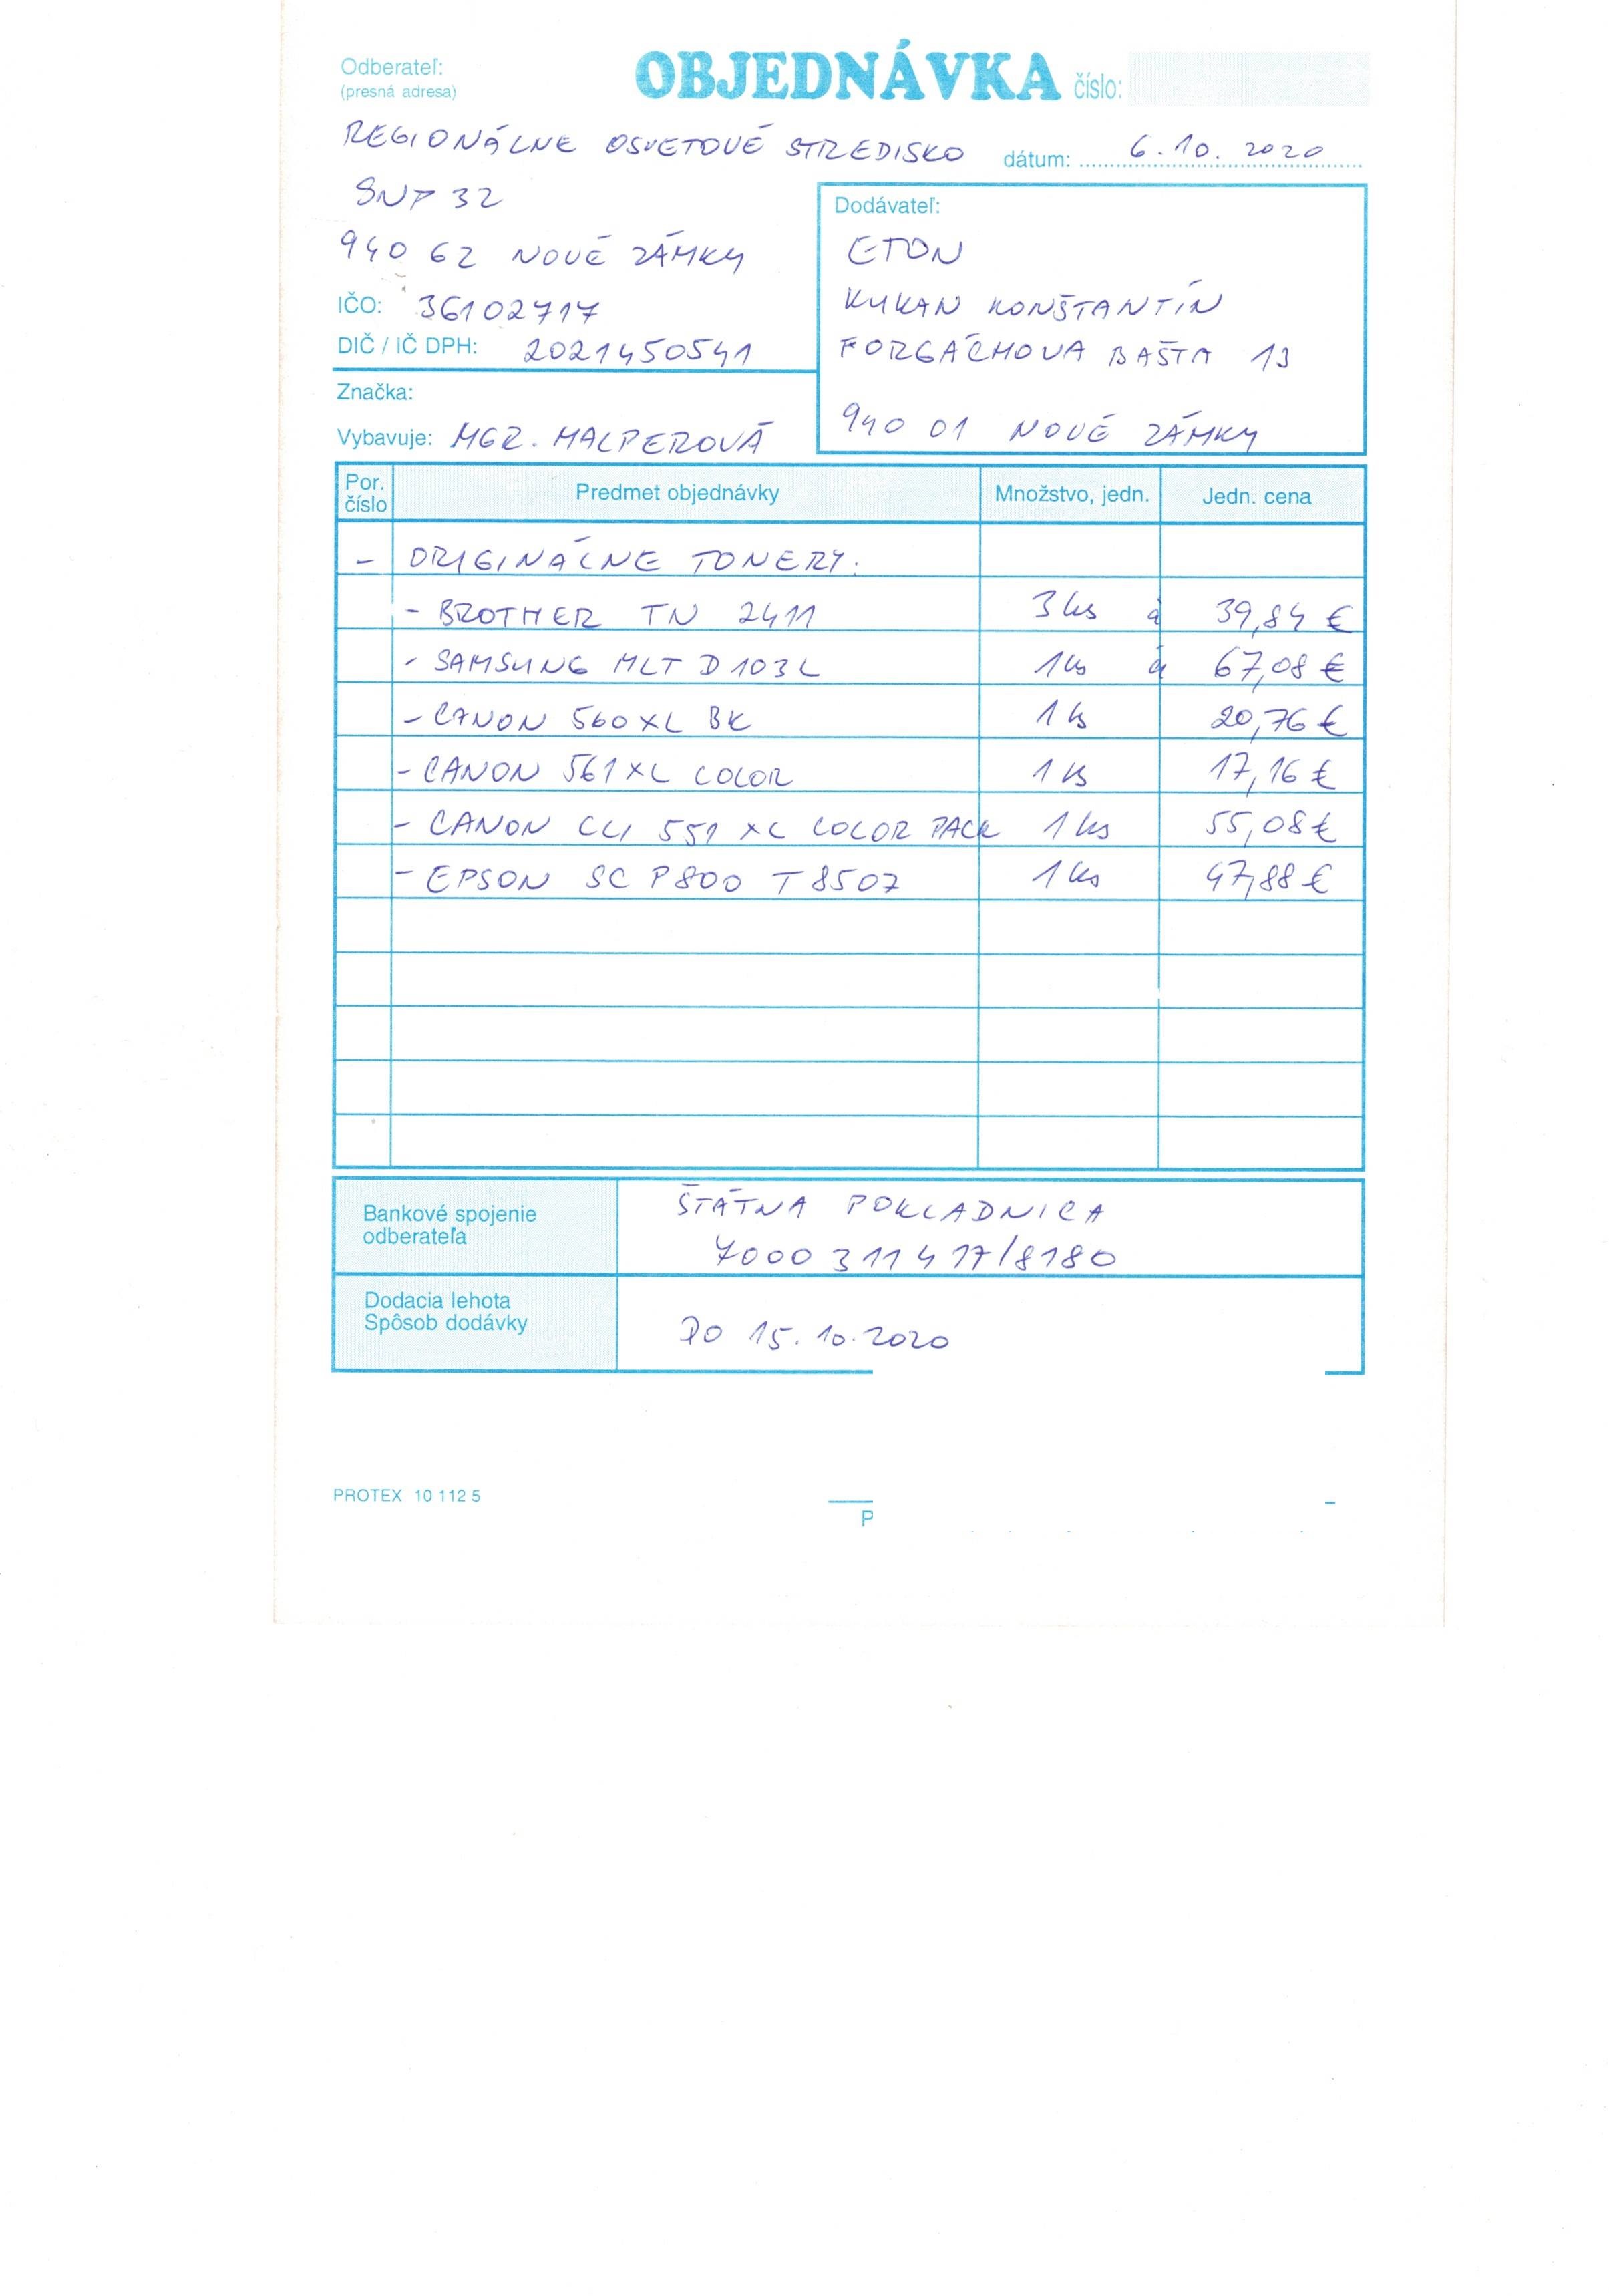 Odberateľ:
(presná adresa)
OBJEDNÁVKA číslo:
REGIONÁLNE OSVETOVÉ STREDISKO
dátum: 6.10.2020
SNP 32
940 62 NOVÉ ZÁMKY
IČO: 36102717
DIČ / IČ DPH: 2021450541
Značka:
Vybavuje: MGR. MALPEROVÁ
Dodávateľ:
ETON
KUKAN KONŠTANTÍN
FORGÁCHOVA BAŠTA 13
940 01 NOVÉ ZÁMKY
Por. číslo Predmet objednávky Množstvo, jedn. Jedn. cena
- ORIGINÁLNE TONERY.
- BROTHER TN 2411 3 ks á 39,84 €
- SAMSUNG MLT D 103 L 1 ks á 67,08 €
- CANON 560 XL BK 1 ks 20,76 €
- CANON 561 XL COLOR 1 ks 17,16 €
- CANON CLI 551 XL COLOR PACK 1 ks 55,08 €
- EPSON SC P800 T8507 1 ks 47,88 €
Bankové spojenie
odberateľa
ŠTÁTNA POKLADNICA
7000311417/8180
Dodacia lehota
Spôsob dodávky
DO 15.10.2020
PROTEX 10 112 5
P